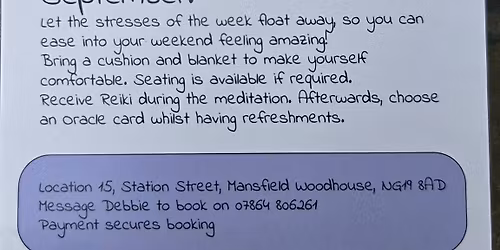 September.
Let the stresses of the week float away, so you can
ease into your weekend feeling amazing!
Bring a cushion and blanket to make yourself
comfortable. Seating is available if required.
Receive Reiki during the meditation. Afterwards, choose
an oracle card whilst having refreshments.
Location 15, Station Street, Mansfield Woodhouse, NG19 8AD
Message Debbie to book on 07864 806261
Payment secures booking